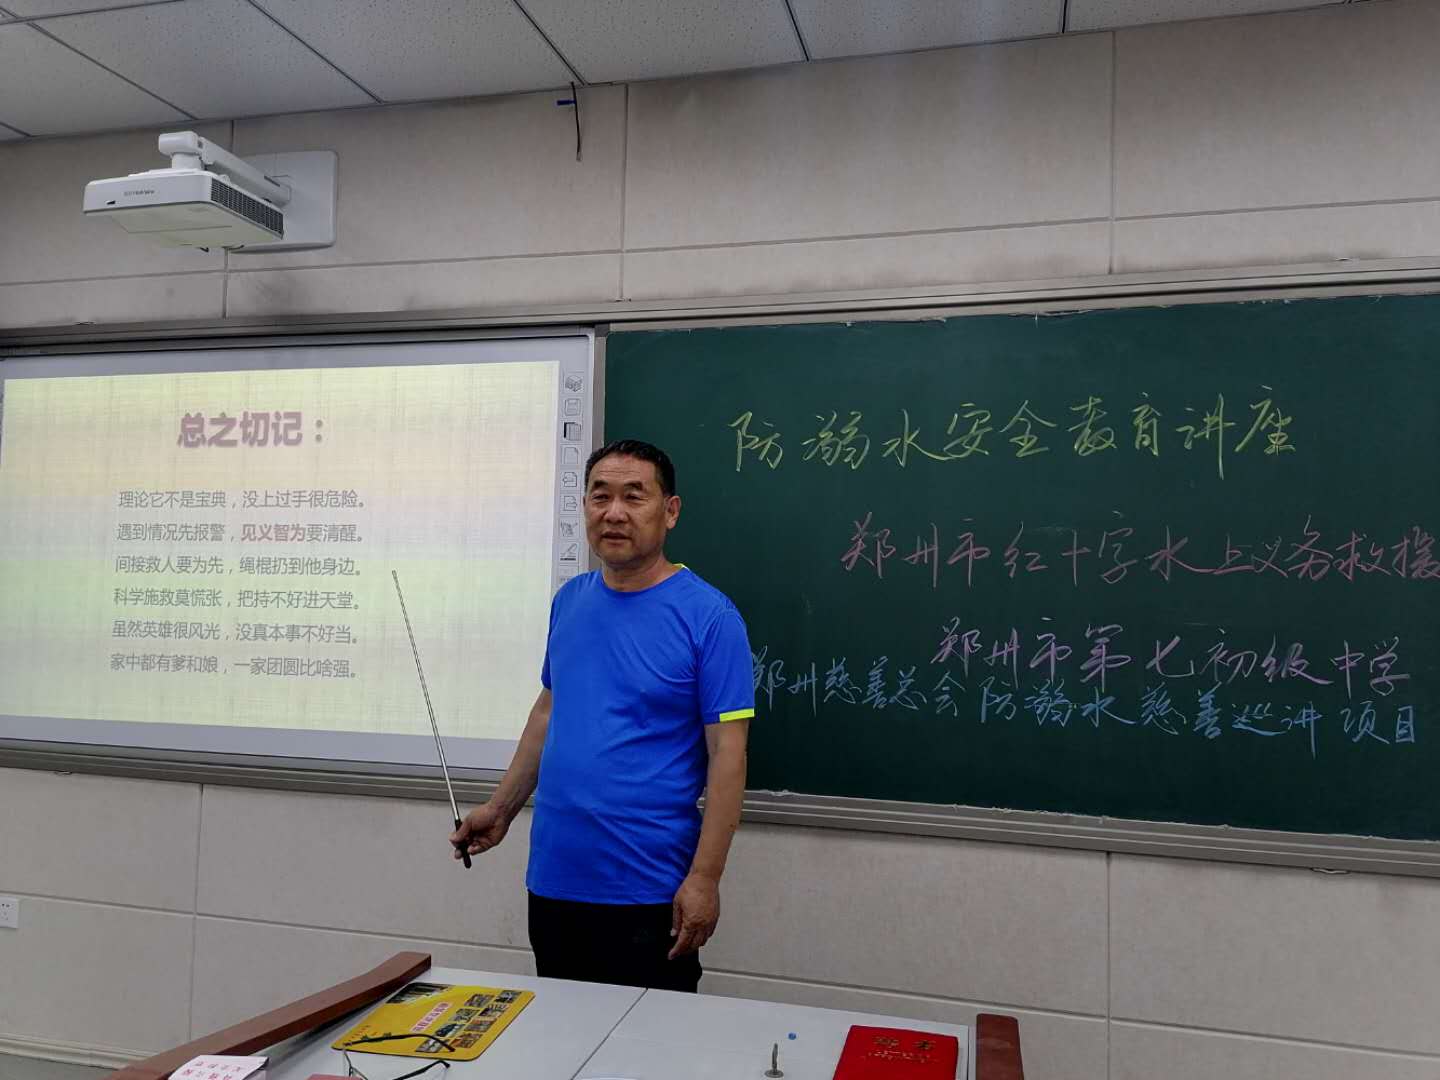 总之切记：
理论它不是宝典，没上过手很危险。
遇到情况先报警，见义智为要清醒。
间接救人要为先，绳棍扔到他身边。
科学施救莫慌张，把持不好进天堂。
虽然英雄很风光，没真本事不好当。
家中都有爹和娘，一家团圆比啥强。
防溺水安全教育讲座
郑州市红十字水上义务救援
郑州市第七初级中学
郑州慈善总会防溺水慈善巡讲项目